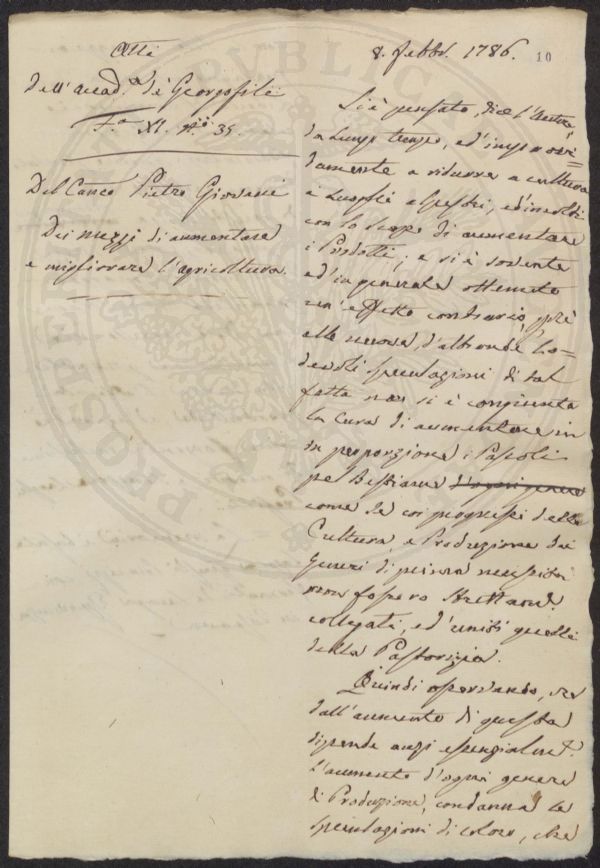 Atti
dell'Accad.a de' Georgofili
T.o XI. N.o 35.
Del Canco Pietro Giovani
Dei mezzi di aumentare
e migliorare l'agricoltura.
8. febbr. 1786.
10
Si è pensato, dice l'Autore,
da lungo tempo, ed
damente a ridurre a cultura
i luoghi alpestri, ed incolti
con lo scopo di aumentare
i Prodotti; e si è sovente
ed in generale ottenuto
un'effetto contrario,
alle d'altronde lo=
devoli speculazioni di tal
fatta non si è congiunta
la cura di aumentare in
in proporzione i Pascoli
pel Bestiame d'ogni genere
come se coi progressi della
Cultura, e Produzione dei
Generi di prima necessità
non fossero
collegati, ed uniti quelli
della Pastorizia.
Quindi osservando, che
dall'aumento di questa
dipende anzi essenzialmte.
l'aumento d'ogni genere
di Produzione, condanna le
speculazioni di coloro, che
PUBLICA
PROSPERITÀ